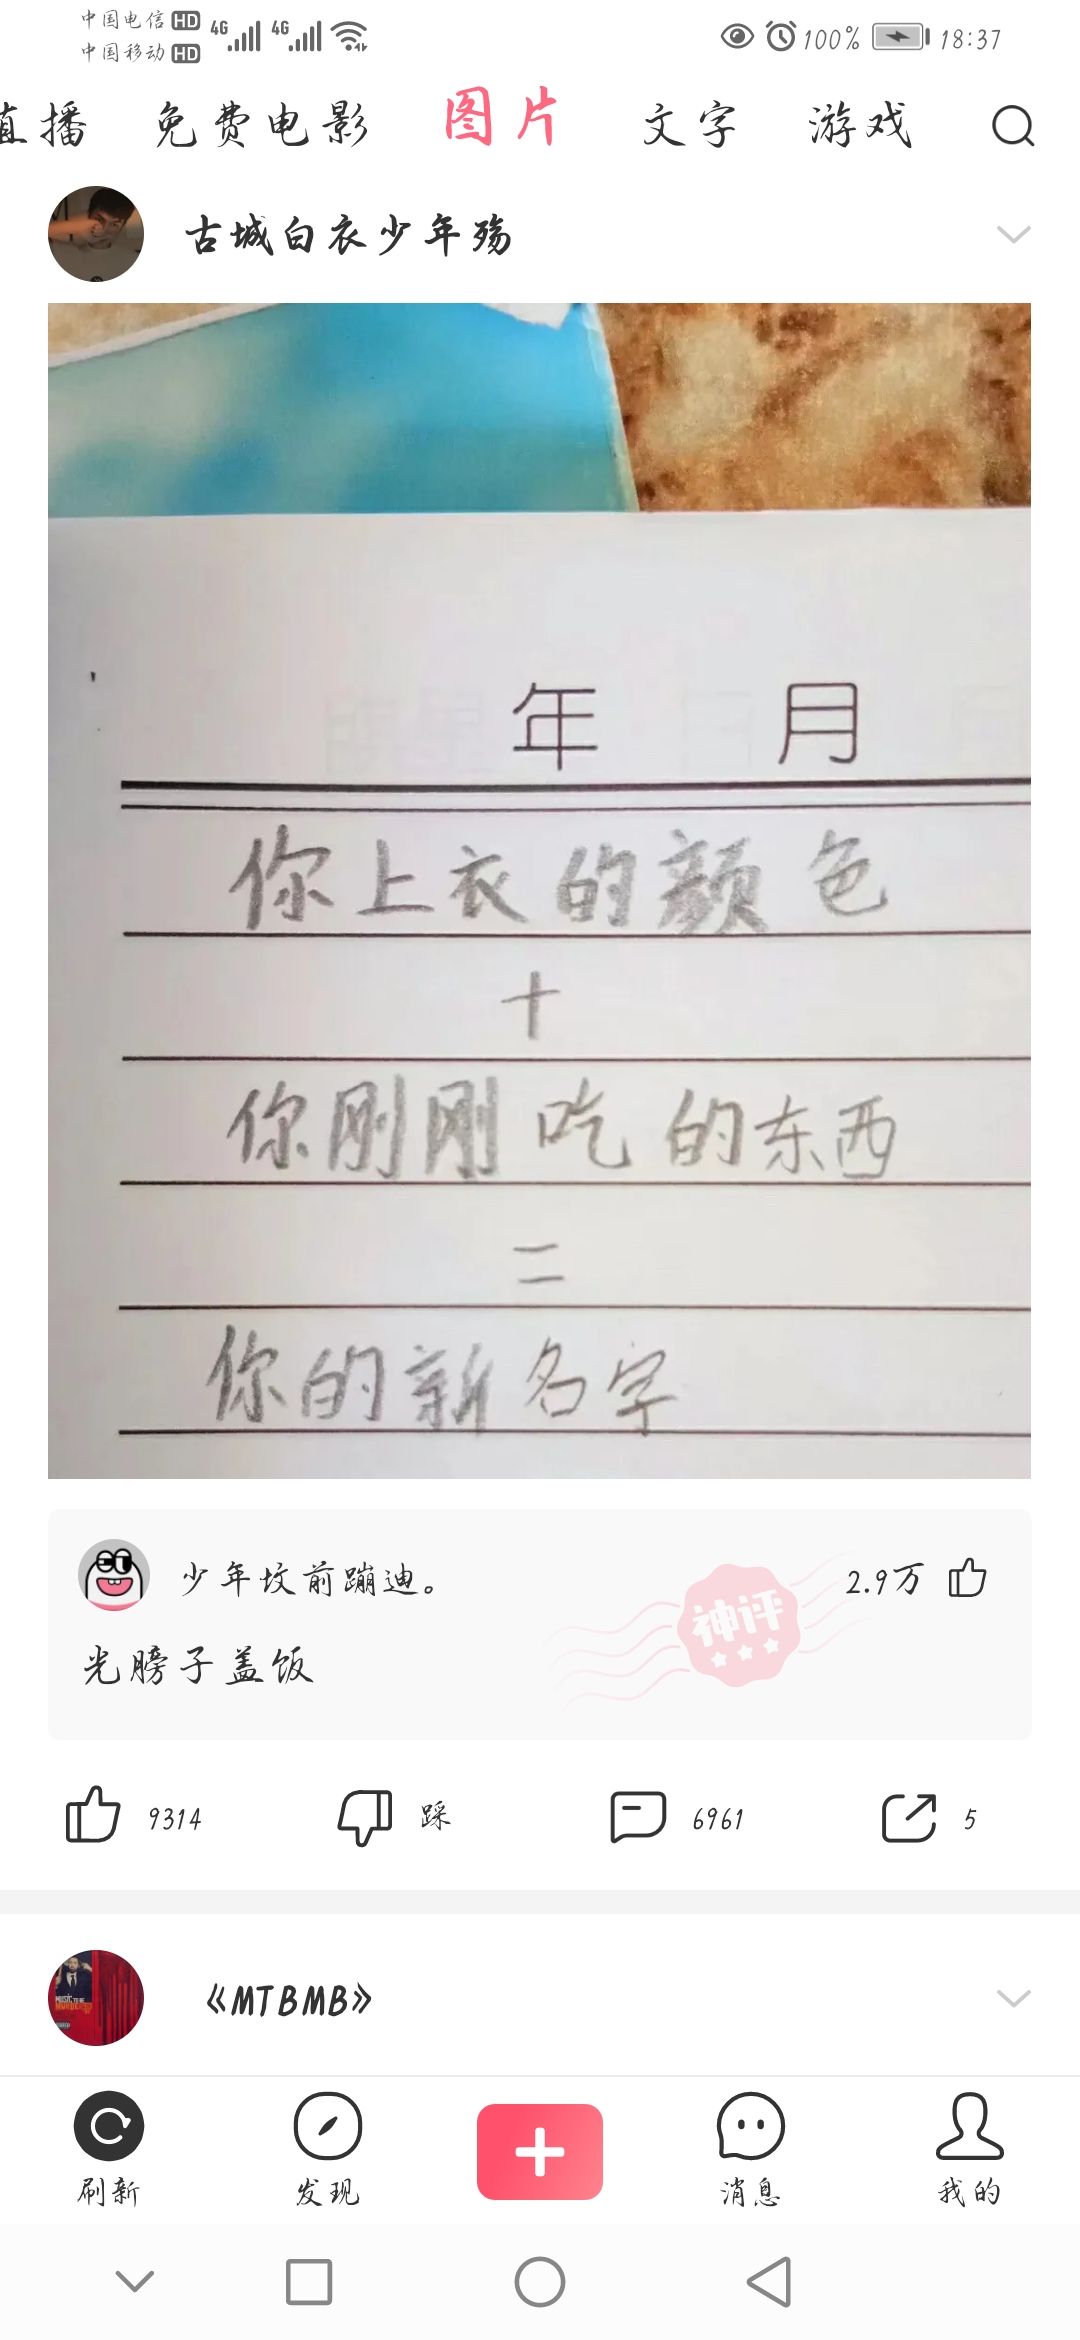 中国电信 HD 4G 4G 100% 18:37
中国移动 HD
直播 免费电影 图片 文字 游戏
古城白衣少年殇
年 月
你上衣的颜色
+
你刚刚吃的东西
=
你的新名字
少年坟前蹦迪。 2.9万
神评
光膀子盖饭
9314 踩 6961 5
MUSIC TO BE
MURDERED
《MTBMB》
刷新 发现 消息 我的